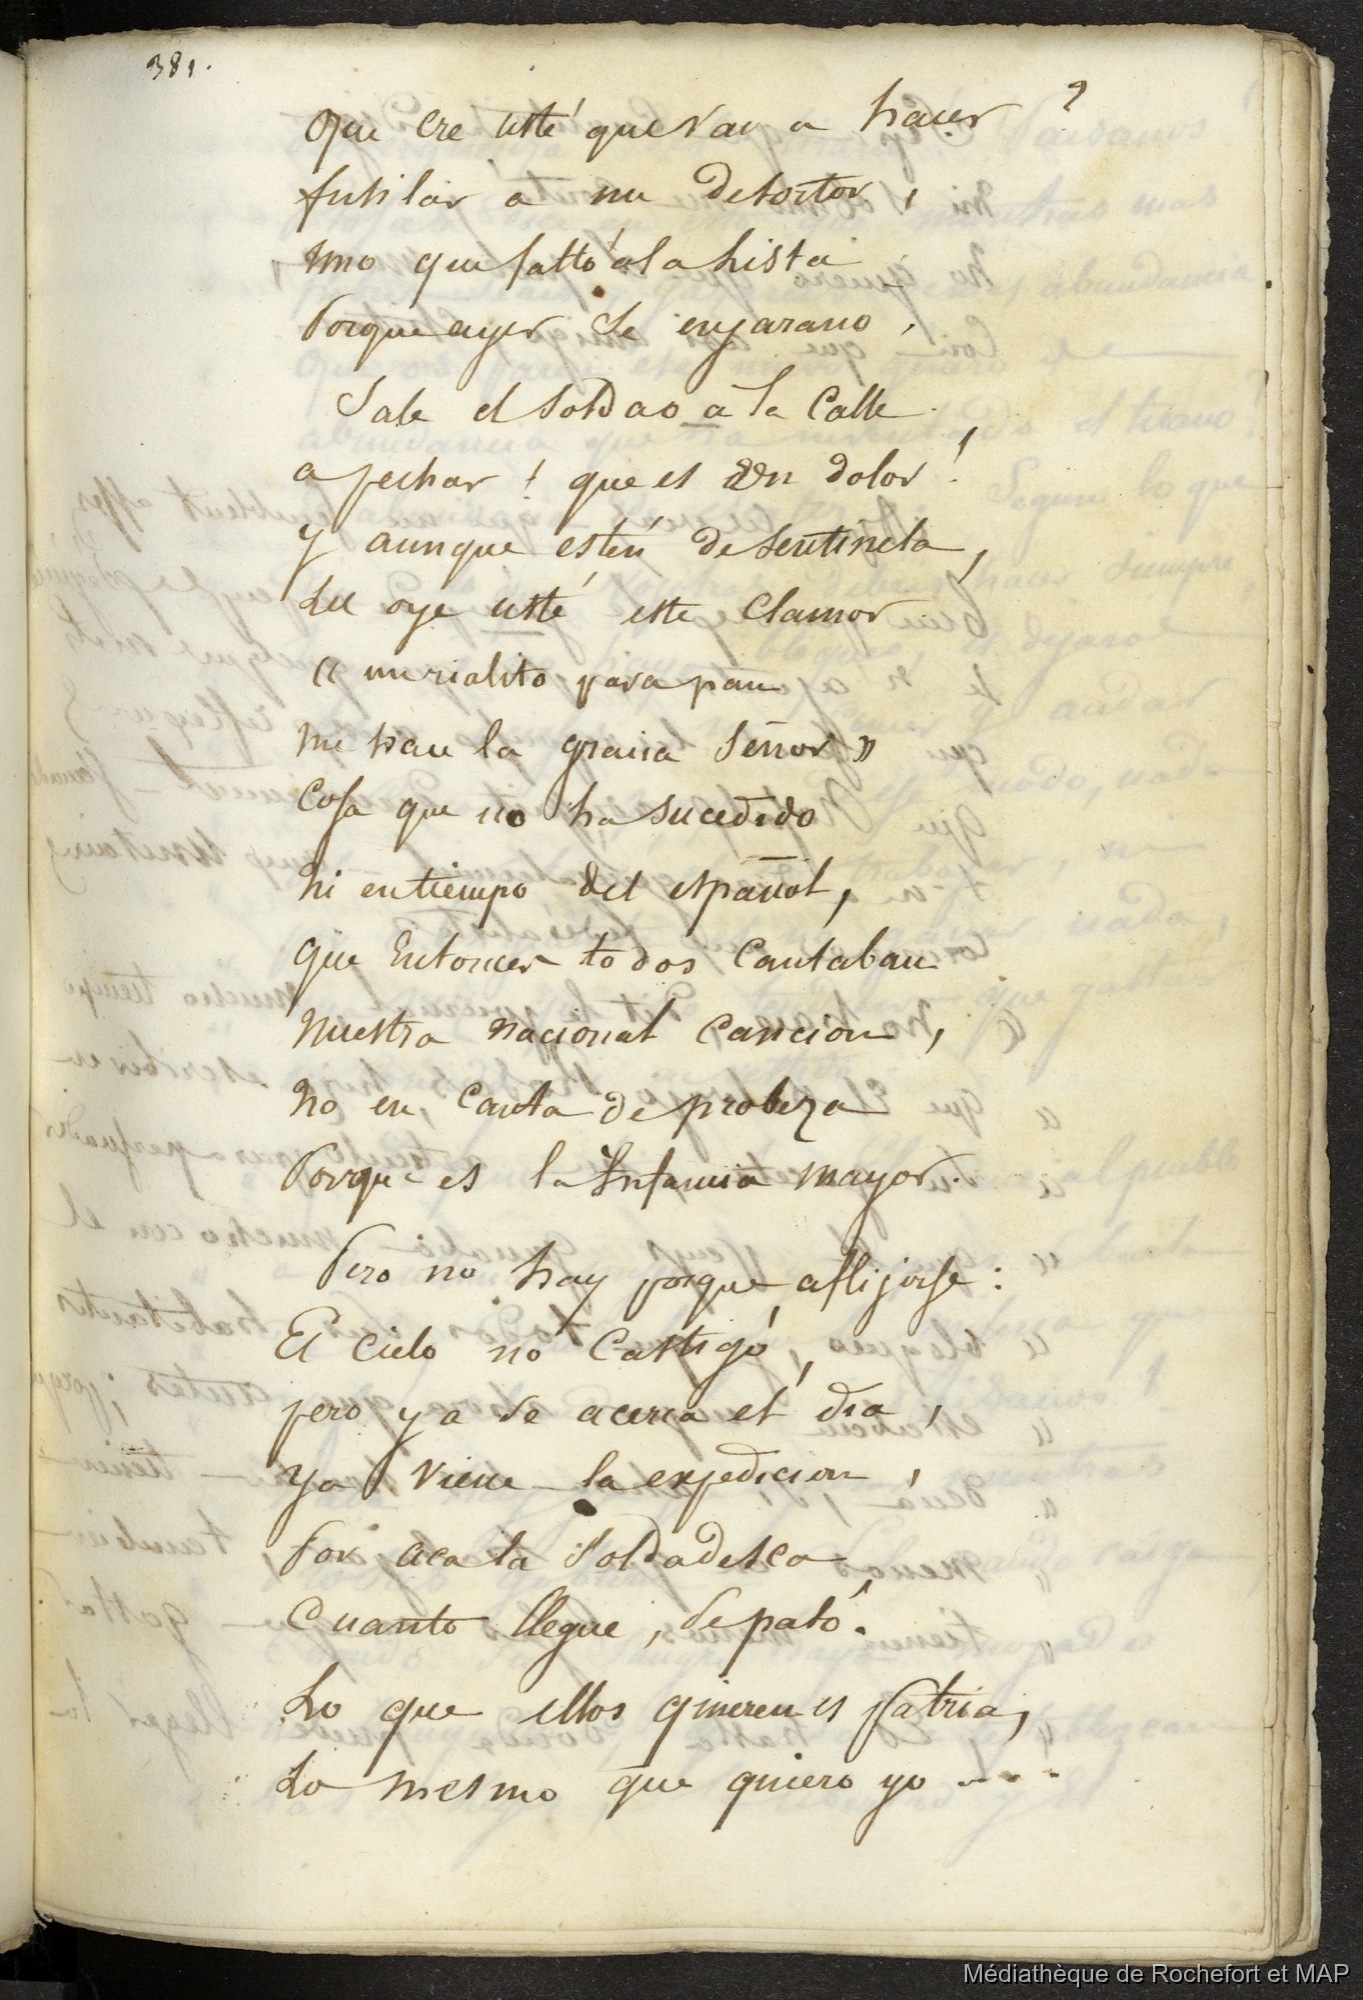 381.
Que cre usté que van a hacer ?
fusilar a un desortor,
uno que faltó a la lista
Porque ayer se enjarano,
Sale el soldao a la calle
a pechar ! que es un dolor !
Y aunque estén de sentinela,
Lu oye usté este clamor
« un rialito para pan
me han la gracia señor »
Cosa que no ha sucedido
ni en tiempo del español,
que entonces todos cantaban
nuestra nacional cancion,
no en, canta de probeza
Porque es la Infamia mayor.
Pero no hay porque aflijirse :
El cielo no castigó,
pero ya se acerca el dia,
ya viene la expedicion,
Por aca la soldadesca
Cuanto llegue, se pató.
Lo que ellos quieren es patria,
Lo mesmo que quiero yo ....
Médiathèque de Rochefort et MAP